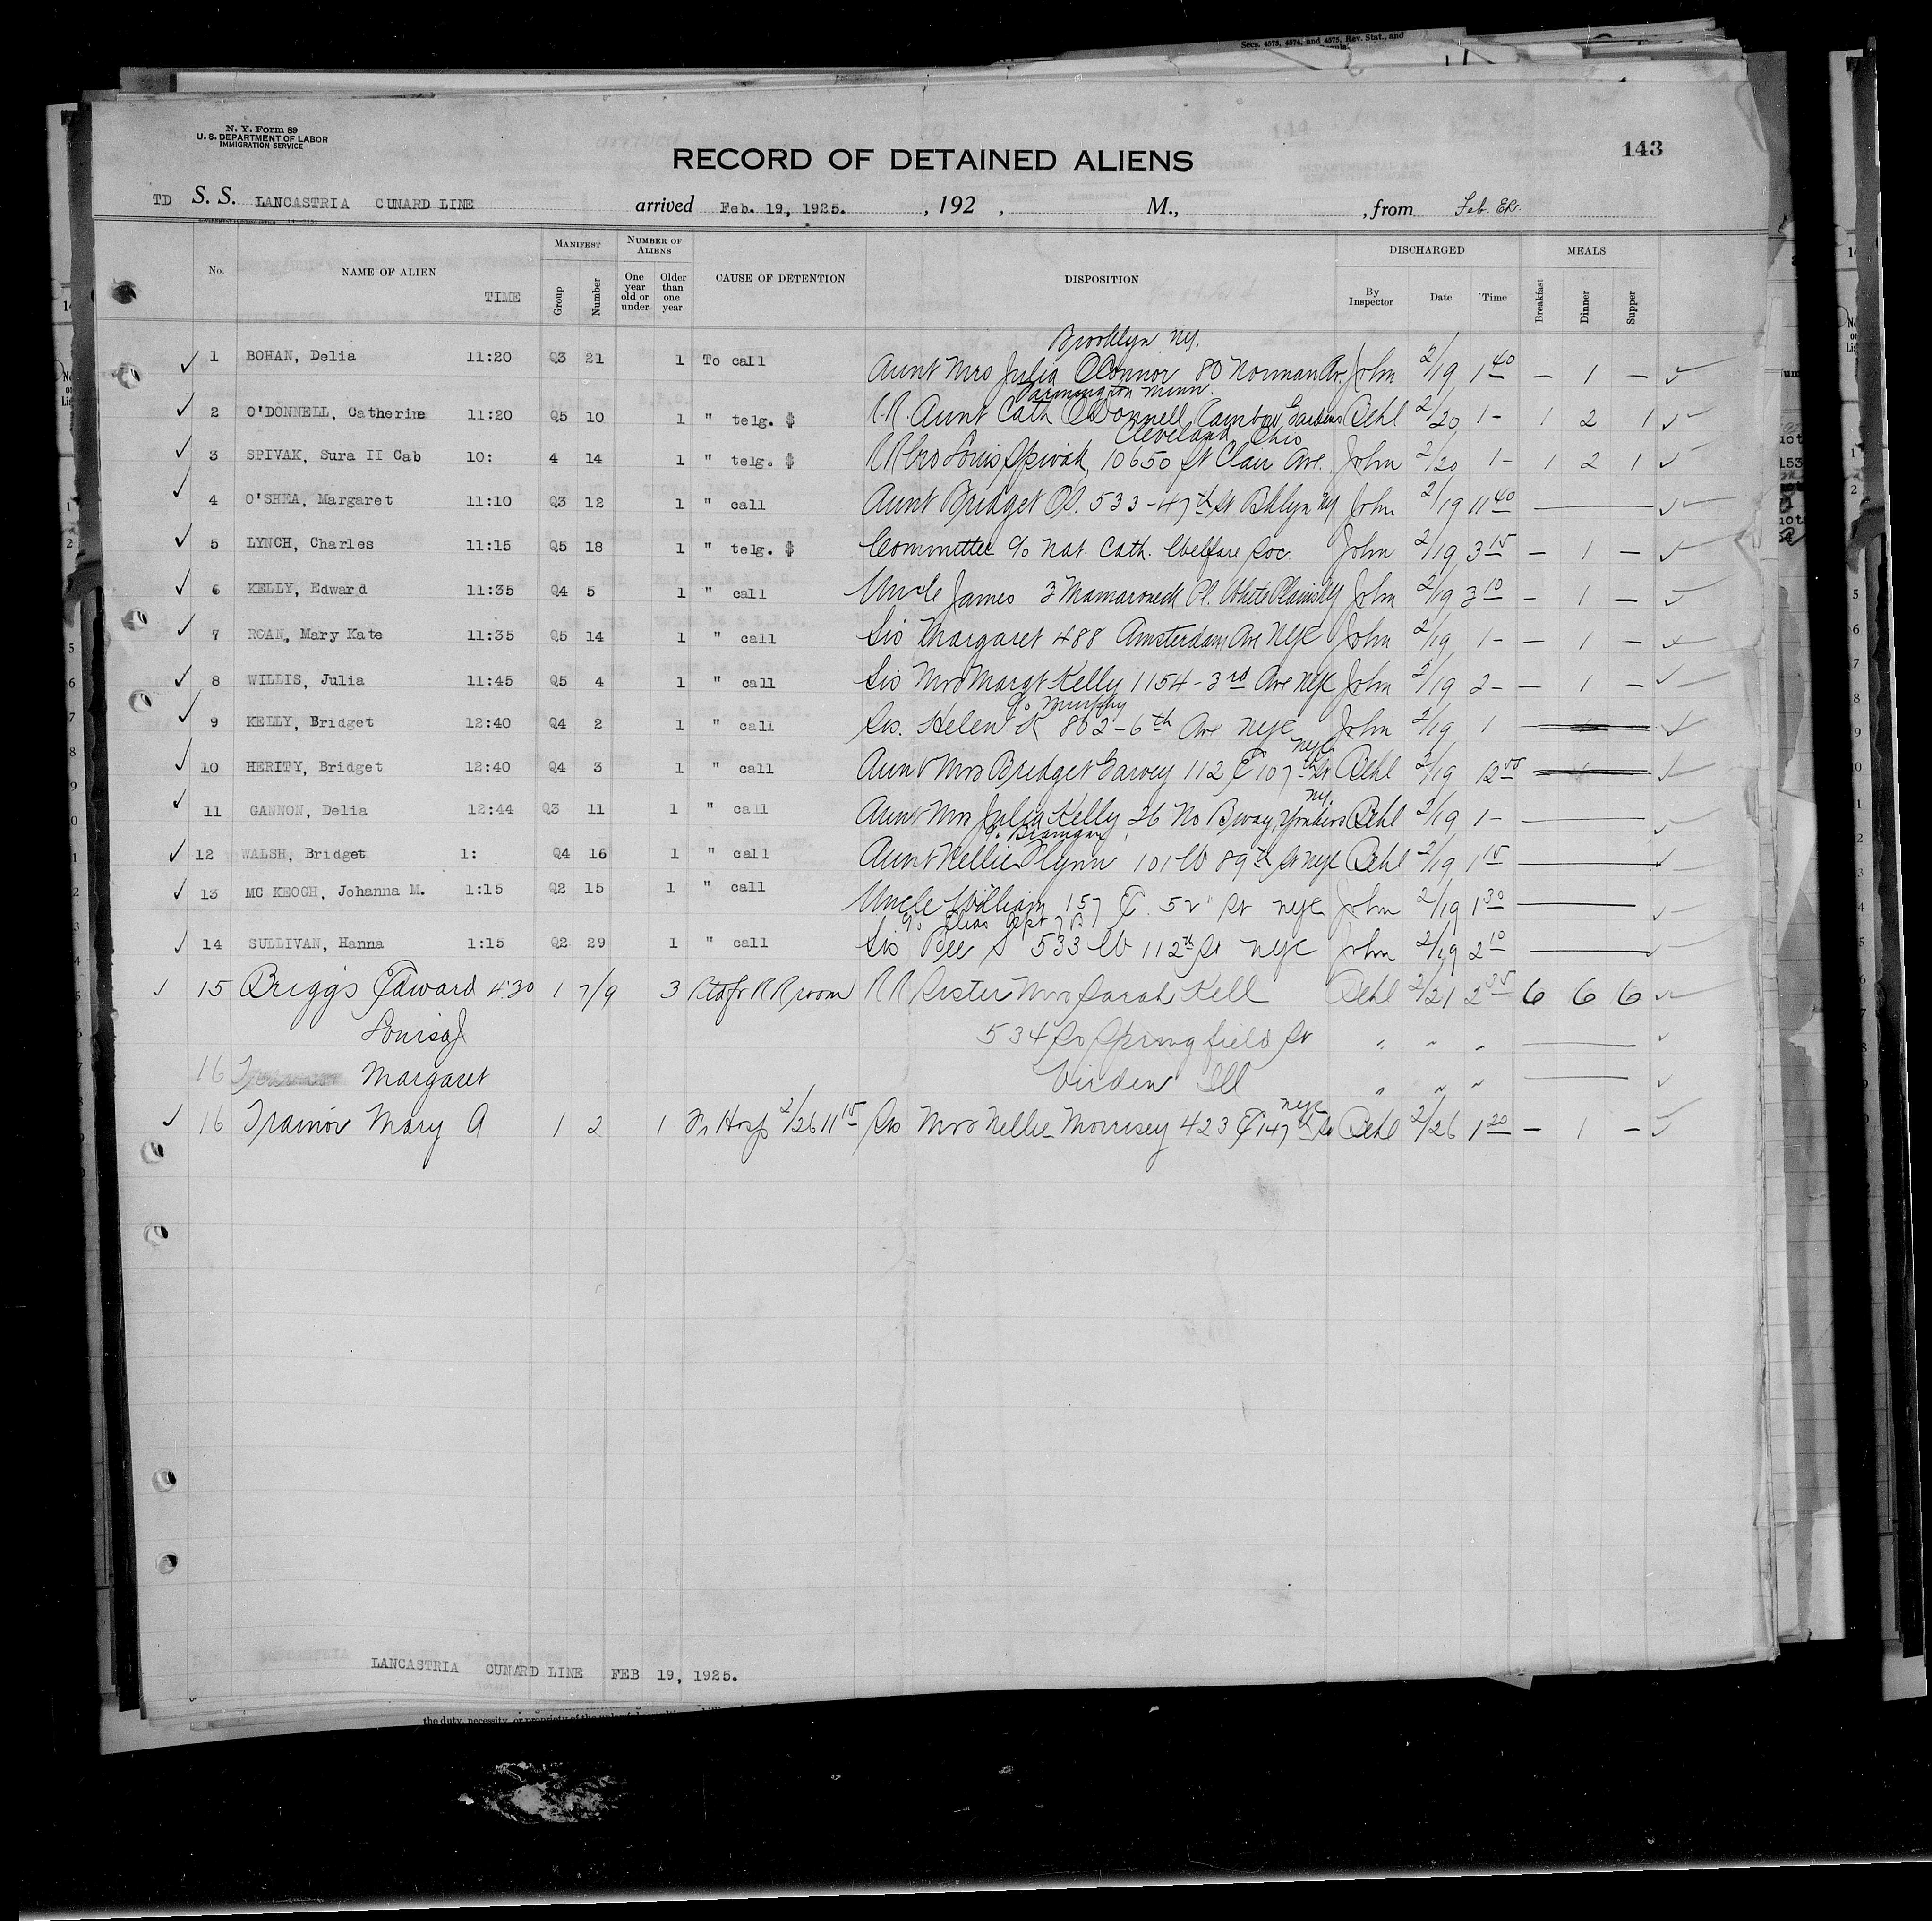 Secs. 4573, 4574, and 4575, Rev. Stat., and
N. Y. Form 89
U. S. DEPARTMENT OF LABOR
IMMIGRATION SERVICE
RECORD OF DETAINED ALIENS
143
TD S. S. LANCASTRIA CUNARD LINE arrived Feb. 19, 1925. , 192 , M., , from
No. NAME OF ALIEN TIME MANIFEST Group Number NUMBER OF ALIENS One year old or under Older than one year CAUSE OF DETENTION DISPOSITION DISCHARGED By Inspector Date Time MEALS Breakfast Dinner Supper
Brooklyn NY.
✓ 1 BOHAN, Delia 11:20 Q3 21 1 To call Aunt Mrs Julia O'Connor 80 Norman Av. John 2/19 1 40 — 1 — ✓
Farmington Minn.
✓ 2 O'DONNELL, Catherine 11:20 Q5 10 1 " telg. $ RR. Aunt Cath O'Donnell, Gardens Behl 2/20 1- 1 2 1 ✓
Cleveland, Ohio
✓ 3 SPIVAK, Sura II Cab 10: 4 14 1 " telg. $ RR bro Louis Spivak, 10650 St Clair Ave. John 2/20 1- 1 2 1 ✓
✓ 4 O'SHEA, Margaret 11:10 Q3 12 1 " call Aunt Bridget O'S. 533-47th St Bklyn NY John 2/19 11 40 — ✓
✓ 5 LYNCH, Charles 11:15 Q5 18 1 " telg. $ Committee c/o Nat. Cath. Welfare Soc. John 2/19 3 15 — 1 — ✓
✓ 6 KELLY, Edward 11:35 Q4 5 1 " call Uncle James 3 Mamaroneck Pl. White Plains NY John 2/19 3 10 — 1 — ✓
✓ 7 ROAN, Mary Kate 11:35 Q5 14 1 " call Sis Margaret 488 Amsterdam Ave NYC John 2/19 1- — 1 — ✓
✓ 8 WILLIS, Julia 11:45 Q5 4 1 " call Sis Mrs Margt Kelly 1154-3rd Ave NYC John 2/19 2- — 1 — ✓
c/o Murphy
✓ 9 KELLY, Bridget 12:40 Q4 2 1 " call Sis. Helen K 802-6th Ave NYC John 2/19 1 — ✓
NYC
✓ 10 HERITY, Bridget 12:40 Q4 3 1 " call Aunt Mrs Bridget Garvey 112 E 107th St Behl 2/19 — ✓
NY.
✓ 11 GANNON, Delia 12:44 Q3 11 1 " call Aunt Mrs Julia Kelly 26 No Bway, Yonkers Behl 2/19 1- — ✓
c/o Branigan
✓ 12 WALSH, Bridget 1: Q4 16 1 " call Aunt Nellie Flynn 101 W 89th St NYC Behl 2/19 1 15 — ✓
✓ 13 MC KEOCH, Johanna M. 1:15 Q2 15 1 " call Uncle William 157 E. 52" St NYC John 2/19 1 30 — ✓
✓ 14 SULLIVAN, Hanna 1:15 Q2 29 1 " call Sis Bee S 533 W 112th St NYC John 2/19 2 10 — ✓
✓ 15 Briggs Edward 4:30 1 7/9 3 RR room RR Sister Mrs Sarah Kell Behl 2/21 2 35 6 6 6 ✓
Louisa J 534 So Springfield St " " " — ✓
16 Margaret Virden Ill " " " — ✓
NYC
✓ 16 Trainor Mary A 1 2 1 Fr Hosp 2/26 11 15 Sis Mrs Nellie Morrisey 423 E 147th St Behl 2/26 1 20 — 1 — ✓
LANCASTRIA CUNARD LINE FEB 19, 1925.